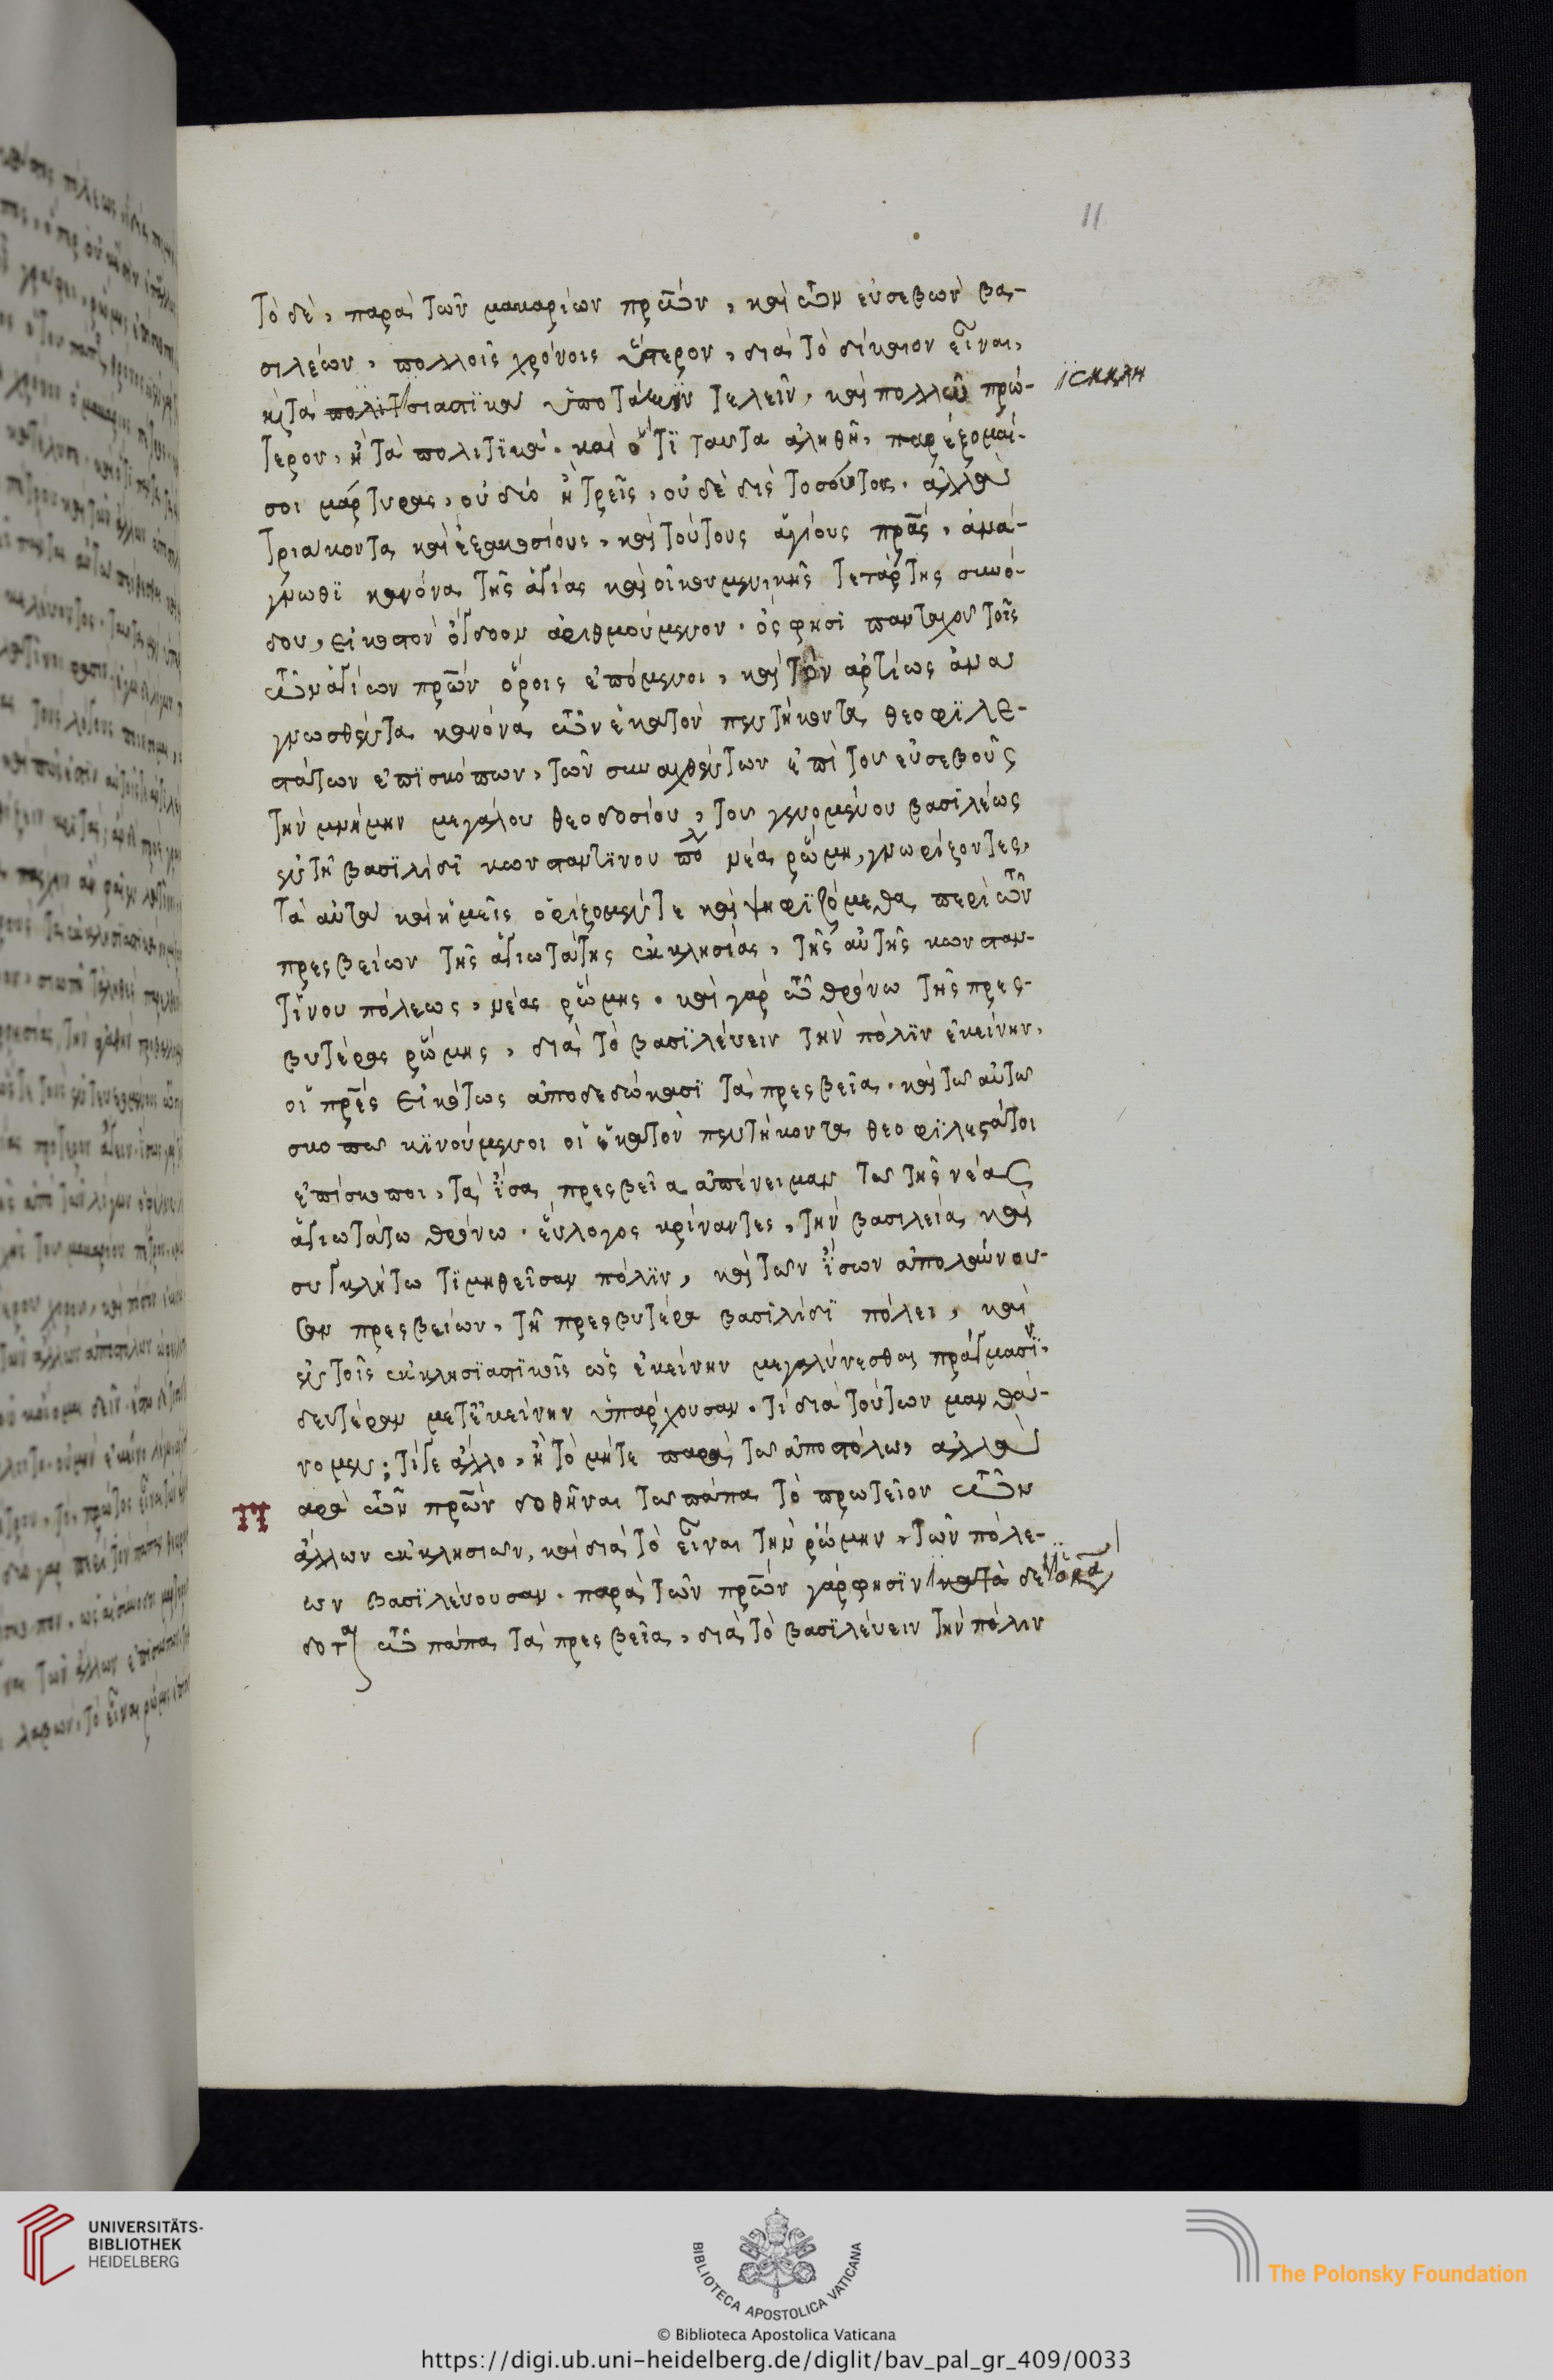 11
τὸ δὲ, παρὰ τῶν μακαρίων πρ̅ων, καὶ τῶν εὐσεβῶν βα-
σιλέων, πολλοῖς χρόνοις ὕστερον, διὰ τὸ δίκαιον εἶναι,
κ τὰ πολιτσιαστϊκὰ ὑποτάττειν τελεῖν, καὶ πολλῶ πρώ-
ἰεκκλη
τερον, ἢ τὰ πολιτϊκά. καὶ ὅτϊ ταυτα ἀληθῆ, παρέξομαί-
σοι μάρτυρας, οὐ δύο ἢ τρεῖς, οὐδὲ δὶς τοσούτους. ἀλλὰ
τριακοντα καὶ ἑξακοσίους, καὶ τούτους ἁγίους πρ̅ας, ἀνά-
γνωθϊ κανόνα τῆς ἁγίας καὶ οἰκουμενικῆς τετάρτης συνό-
δου, εἰκοστὸν ὄγδοον ἀριθμούμενον. ὅς φησι πανταχου τοῖς
τῶν ἁγίων πρ̅ων ὅροις ἑπόμενοι, καὶ τὸν ἀρτίως ἀνα
γνωσθέντα κανόνα τῶν ἑκατὸν πεντήκοντα θεοφϊλε-
στάτων ἐπϊσκόπων, τῶν συναχθέντων ἐπὶ του εὐσεβοῦς
τὴν μνήμην μεγάλου θεοδοσίου, του γενομένου βασϊλέως
ἐν τῆ βασϊλίδϊ κωνσταντϊνου πολ νέα ρώμη, γνωρίζοντες,
τὰ αὐτὰ καὶ ἡμεῖς ὁρίζομέν τε καὶ ψηφϊζόμεθα περὶ τῶν
πρεσβείων τῆς ἁγιωτάτης ἐκκλησίας, τῆς αὐτῆς κωνσταν-
τίνου πόλεως, νέας ρώμης. καὶ γὰρ τῶ θρόνω τῆς πρεσ-
βυτέρας ρώμης, διὰ τὸ βασϊλέυειν τὴν πόλϊν ἐκείνην,
οἱ πρ̅ες εἰκότως ἀποδεδώκασϊ τὰ πρεσβεῖα. καὶ τω αὐτω
σκοπω κϊνούμενοι οἱ ἑκατὸν πεντήκοντα θεοφϊλεστάτοι
ἐπίσκοποι, τὰ ἴσα πρεσβεῖα ἀπένειμαν τω τῆς νέας
ἁγιωτάτω θρόνω. ἐύλογος κρίναντες, τὴν βασιλεία καὶ
συγκλήτω τϊμηθεῖσαν πόλϊν, καὶ των ἴσων ἀπολάυου-
σαν πρεσβείων, τῆ πρεσβυτέρα βασϊλίδϊ πόλει, καὶ
ἐν τοῖς ἐκκλησϊαστϊκοῖς ὡς ἐκείνην μεγαλύνεσθαι πράγμασϊν,
δευτέραν μετ' ἐκείνην ὑπάρχουσαν. τί διὰ τούτων μανθά-
νομεν; τί γε ἄλλο, ἢ τὸ μήτε παρὰ των ἀποστόλων ἀλλὰ
π
αρὰ τῶν πρ̅ων δοθῆναι τω πάπα τὸ πρωτεῖον τῶν
ἄλλων ἐκκλησιων, καὶ διὰ τὸ εἶναι τὴν ρώμην, τῶν πόλε-
ων βασϊλέυουσαν. παρὰ τῶν πρ̅ων γάρ φησϊν κατὰ δε
δοται τῶ πάπα τὰ πρεσβεῖα, διὰ τὸ βασϊλέυειν τὴν πόλιν
UNIVERSITÄTS-
BIBLIOTHEK
HEIDELBERG
BIBLIOTECA APOSTOLICA VATICANA
The Polonsky Foundation
© Biblioteca Apostolica Vaticana
https://digi.ub.uni-heidelberg.de/diglit/bav_pal_gr_409/0033